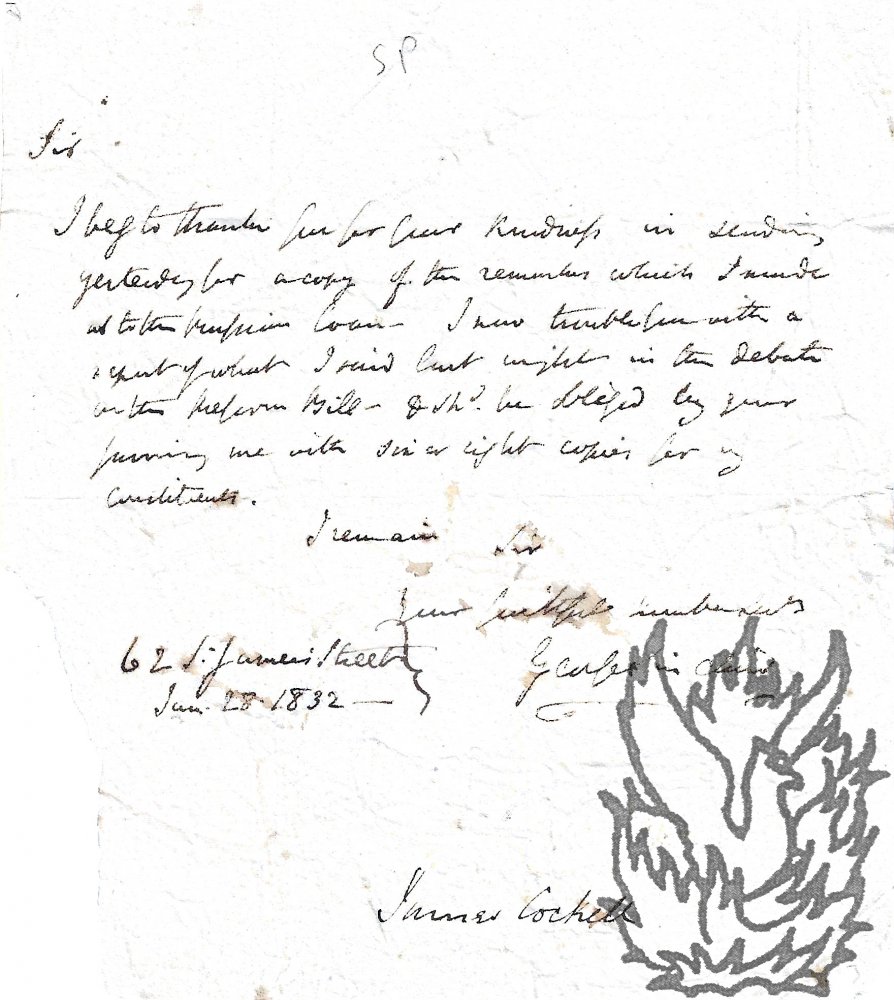 SP
Sir
I beg to thank you for your kindness in sending
yesterday for a copy of the remarks which I made
as to the Russian Loan - I now trouble you with a
report of what I said last night in the debate
on the Reform Bill - & shd. be obliged by your
me with six or eight copies for my
constituents.
I remain Sir
Your faithful humble
62 St. James's Street
George Sinclair
Jan. 28 1832 —
James Cockell